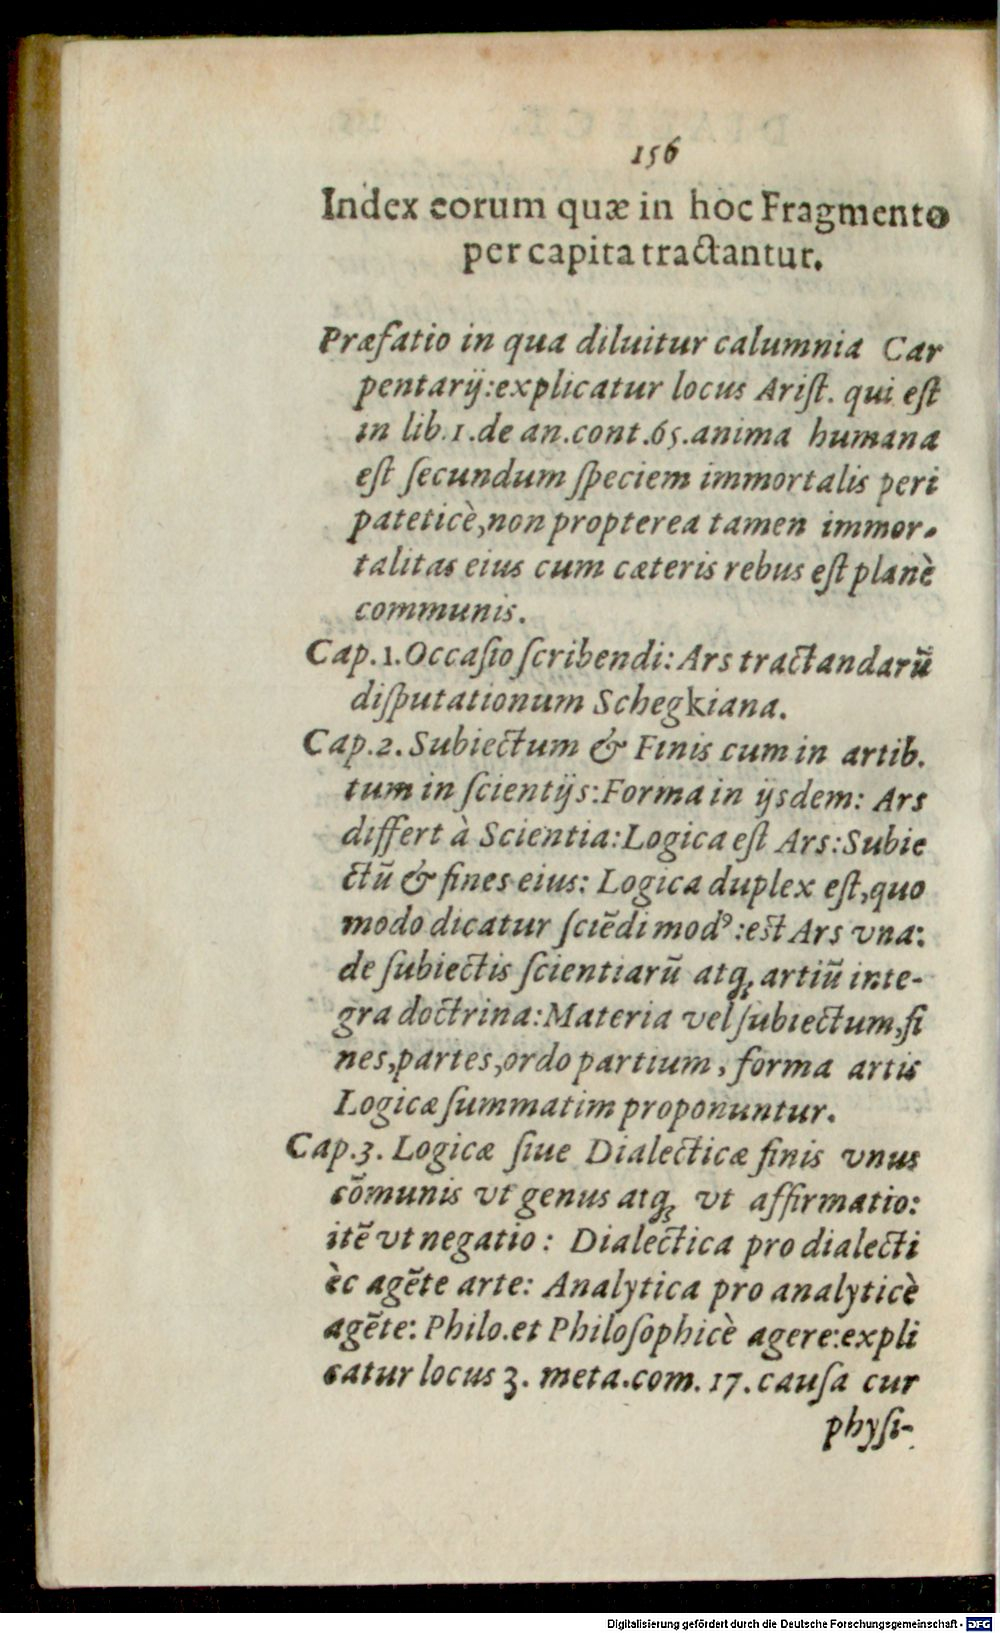 156
Index eorum quæ in hoc Fragmento
per capita tractantur.
Præfatio in qua diluitur calumnia Car
pentarij:explicatur locus Arist. qui est
in lib.1.de an.cont.65.anima humana
est ſecundum ſpeciem immortalis peri
pateticè,non propterea tamen immor-
talitas eius cum cæteris rebus eſt planè
communis.
Cap.1.Occaſio ſcribendi: Ars tractandarū
diſputationum Schegkiana.
Cap.2. Subiectum & Finis cum in artib.
tum in ſcientijs:Forma in ijsdem: Ars
differt à Scientia:Logica eſt Ars:Subie
ctū & fines eius: Logica duplex eſt,quo
modo dicatur ſciēdi modꝰ:est Ars vna:
de ſubiectis ſcientiarū atq; artiū inte-
gra doctrina:Materia vel ſubiectum,fi
nes,partes,ordo partium, forma artis
Logicæ ſummatim proponuntur.
Cap.3. Logicæ ſiue Dialecticæ finis vnus
cōmunis vt genus atq; vt affirmatio:
itē vt negatio: Dialectica pro dialecti
èc agēte arte: Analytica pro analyticè
agēte: Philo.et Philoſophicè agere:expli
catur locus 3. meta.com. 17. cauſa cur
phyſi-
Digitalisierung gefördert durch die Deutsche Forschungsgemeinschaft - DFG